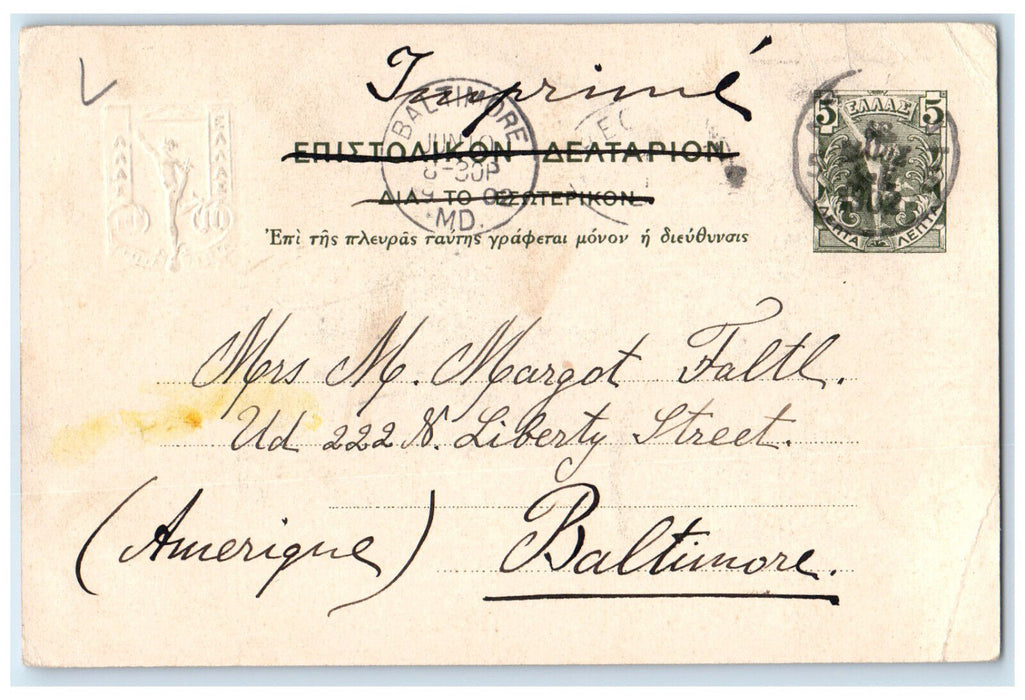 Imprimé
5 ΕΛΛΑΣ 5
BALTIMORE
JUN
8-30P
02
MD.
ΕΠΙΣΤΟΛΙΚΟΝ ΔΕΛΤΑΡΙΟΝ
ΔΙΑ ΤΟ ΕΣΩΤΕΡΙΚΟΝ
ΛΕΠΤΑ ΛΕΠΤΑ
Ἐπὶ τῆς πλευρᾶς ταύτης γράφεται μόνον ἡ διεύθυνσις
Mrs M. Margot Faltl.
Ud 222 N. Liberty Street.
(Amerique) Baltimore.